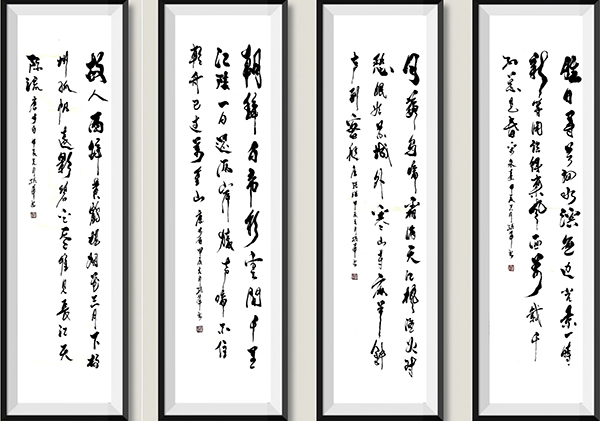 故人西辞黄鹤楼烟花三月下扬
州孤帆远影碧空尽唯见长江天
际流 唐李白
朝辞白帝彩云间千里
江陵一日还两岸猿声啼不住
轻舟已过万重山 唐李白
月落乌啼霜满天江枫渔火对
愁眠姑苏城外寒山寺夜半钟
声到客船 唐张继
胜日寻芳泗水滨无边光景一时
新等闲识得东风面万紫千
红总是春 宋朱熹